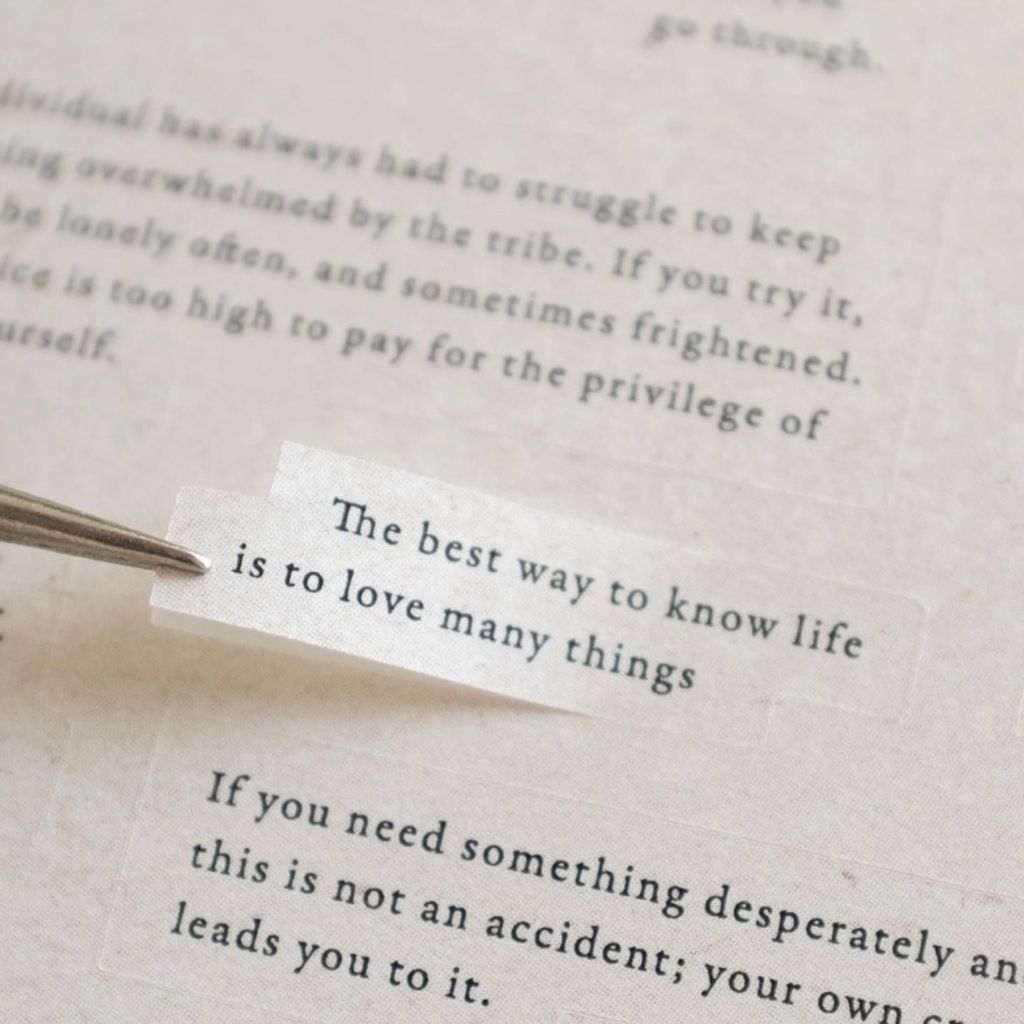 go through.
dividual has always had to struggle to keep
ing overwhelmed by the tribe. If you try it,
be lonely often, and sometimes frightened.
ice is too high to pay for the privilege of
urself.
The best way to know life
is to love many things
If you need something desperately an
this is not an accident; your own
leads you to it.